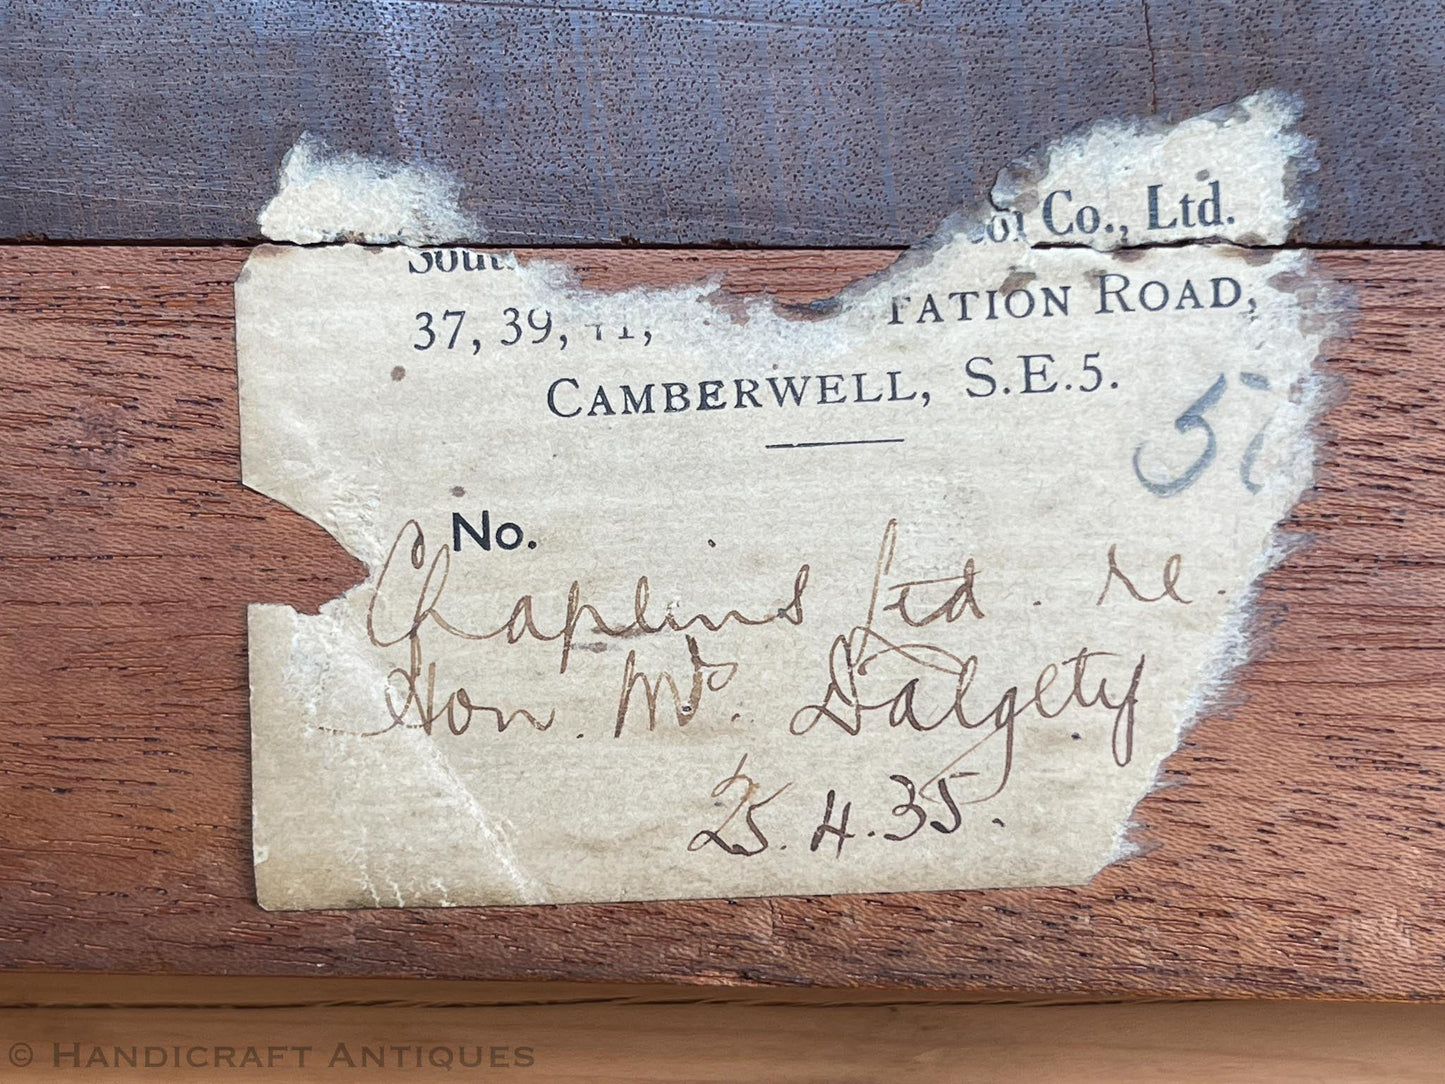 Co., Ltd.
37, 39, 41, TATION ROAD,
CAMBERWELL, S.E.5.
No.
Chaplins Ltd. re.
Hon. Mrs. Dalgety
25.4.35.
© HANDICRAFT ANTIQUES